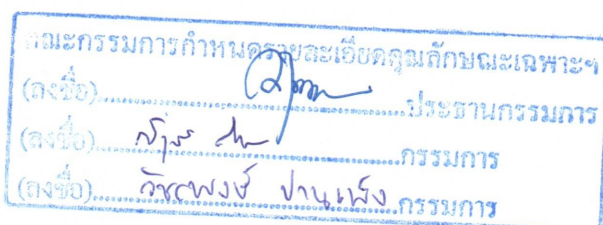 คณะกรรมการกำหนดรายละเอียดคุณลักษณะเฉพาะฯ
(ลงชื่อ)........................ประธานกรรมการ
(ลงชื่อ)........................กรรมการ
(ลงชื่อ)....วัชรพงษ์ ปานเพ็ง....กรรมการ